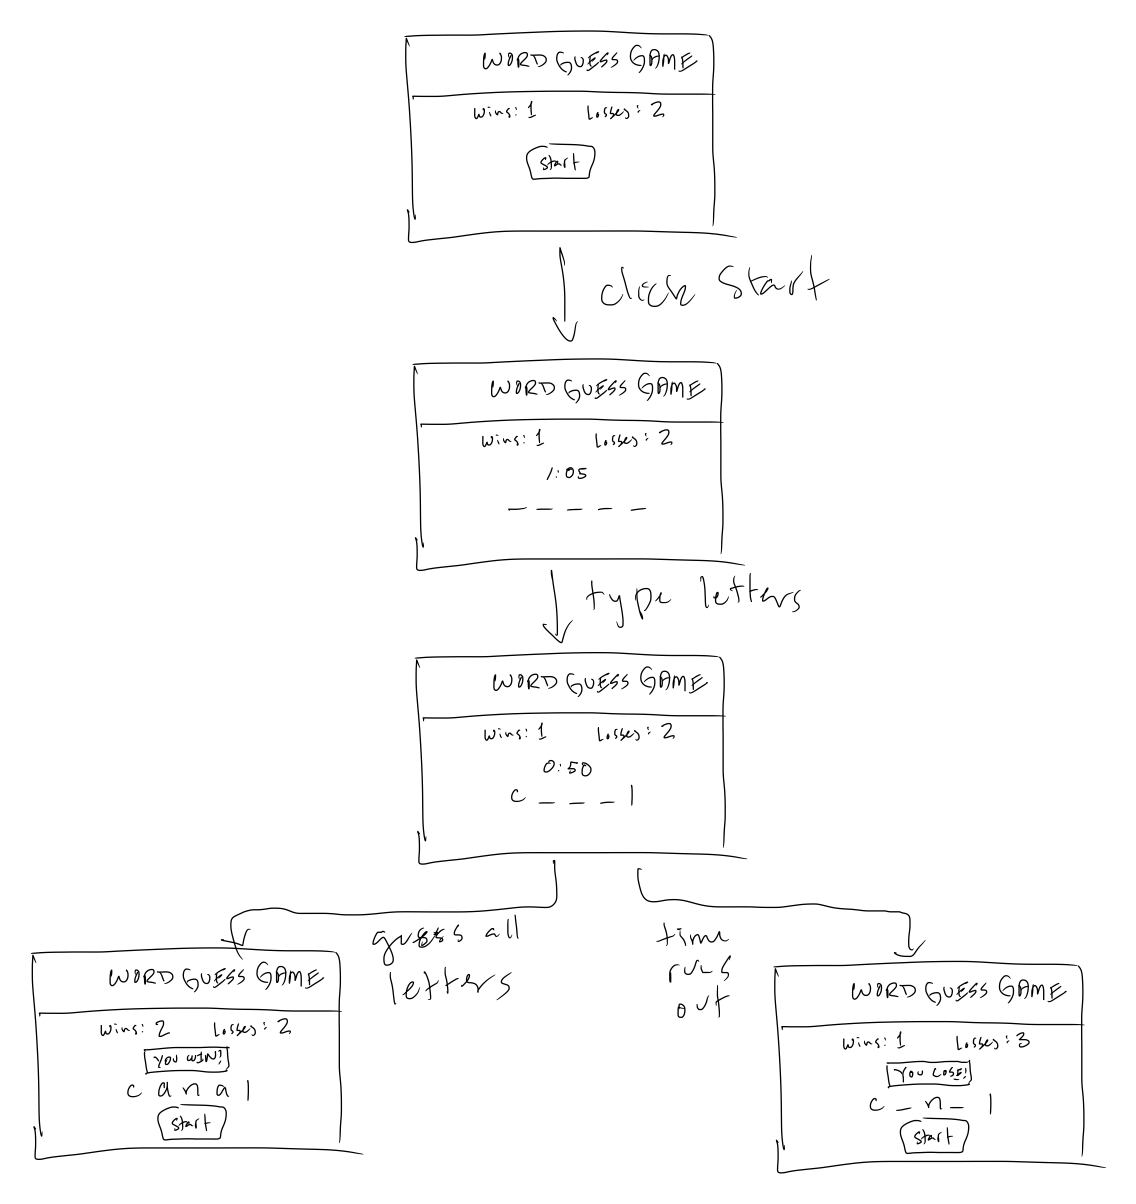 WORD GUESS GAME
Wins: 1 Losses: 2
Start
click Start
WORD GUESS GAME
Wins: 1 Losses: 2
1:05
_ _ _ _ _
type letters
WORD GUESS GAME
Wins: 1 Losses: 2
0:50
c _ _ _ l
guess all
letters
time
runs
out
WORD GUESS GAME
Wins: 2 Losses: 2
YOU WIN!
c a n a l
Start
WORD GUESS GAME
Wins: 1 Losses: 3
YOU LOSE!
c _ n _ l
Start